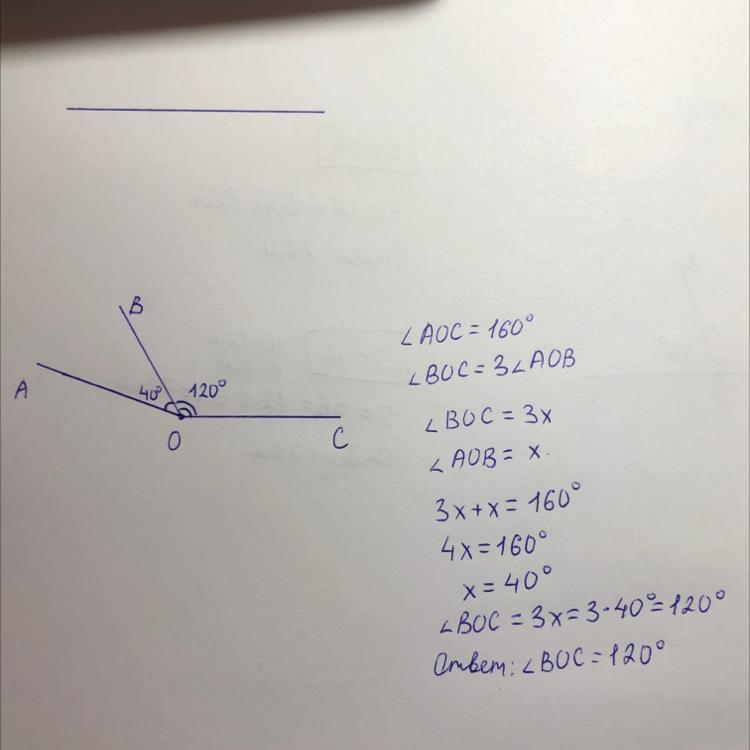 B
A
40° 120°
O
C
∠AOC = 160°
∠BOC = 3∠AOB
∠BOC = 3x
∠AOB = x.
3x+x = 160°
4x = 160°
x = 40°
∠BOC = 3x = 3·40° = 120°
Ответ: ∠BOC = 120°